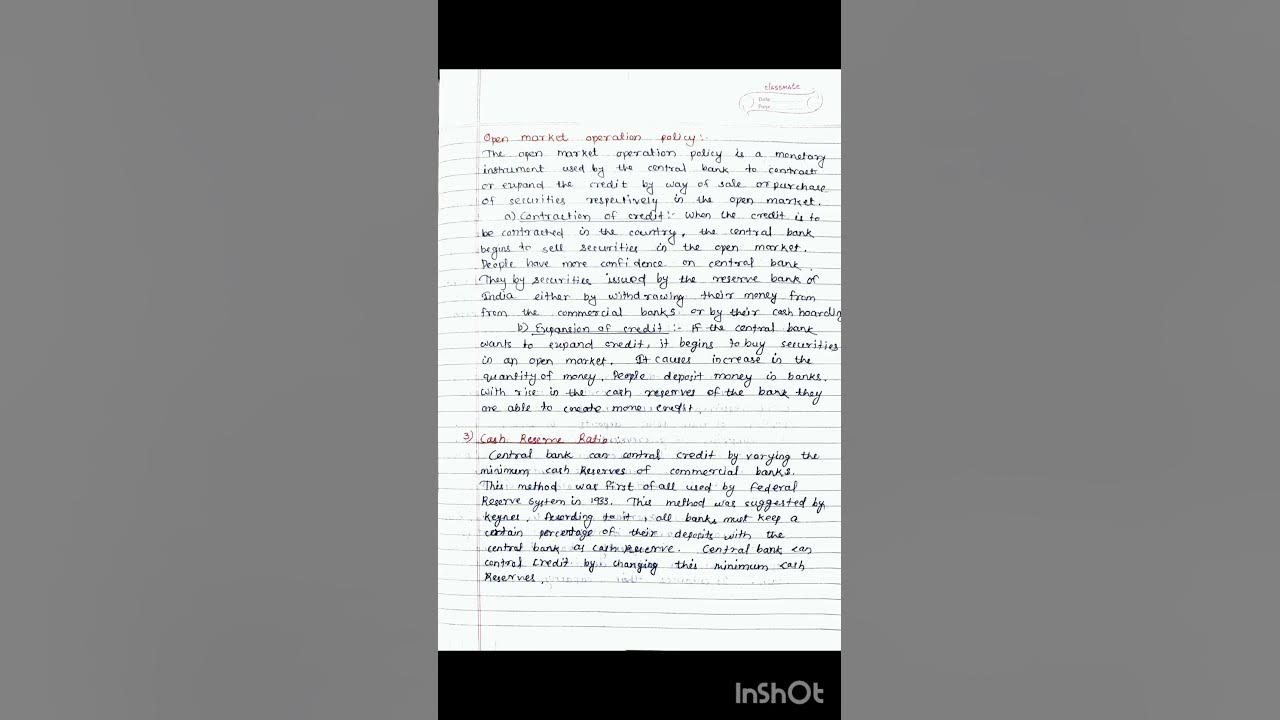 classmate
Date
Page
Open market operation policy :-
The open market operation policy is a monetary
instrument used by the central bank to contract
or expand the credit by way of sale or purchase
of securities respectively in the open market.
a) Contraction of credit :- When the credit is to
be contracted in the country, the central bank
begins to sell securities in the open market.
People have more confidence on central bank.
They by securities issued by the reserve bank of
India either by withdrawing their money from
from the commercial banks or by their cash hoarding
b) Expansion of credit :- If the central bank
wants to expand credit, it begins to buy securities
in an open market. It causes increase in the
quantity of money. People deposit money in banks.
With rise in the cash reserves of the bank they
are able to create more credit.
3) Cash Reserve Ratio :-
Central bank can control credit by varying the
minimum cash Reserves of commercial banks.
This method was first of all used by Federal
Reserve System in 1933. This method was suggested by
Keynes. According to it, all banks must keep a
certain percentage of their deposits with the
central bank as cash Reserve. Central bank can
control credit by changing this minimum cash
Reserves.
InShOt